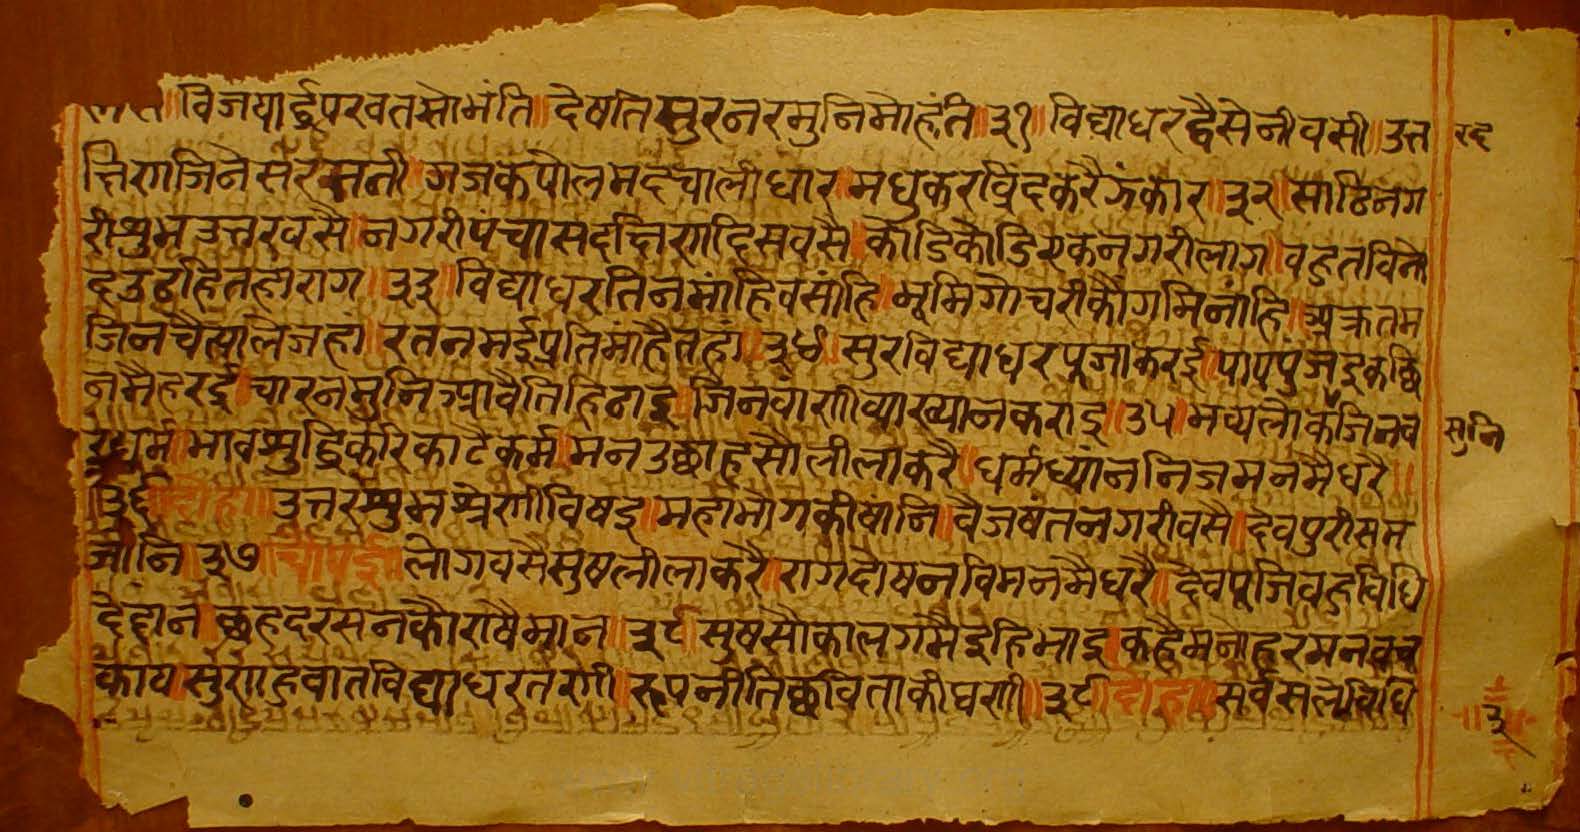 ॥विजयार्द्धपरवतसोभंति॥देषतिसुरनरमुनिमोहंति॥३१॥विद्याधरद्वैसेनीवसी॥उत्त
गजकपोलमदचालीधार॥मधुकरव्रिंदकरैझंकार॥३२॥साठिनग
रीशुभउत्तरवसै॥नगरीपंचासदक्षिणदिसवसै॥कोडिकोडिएकनगरीलाग॥वहुतविनो
दउठहितहाराग॥३३॥विद्याधरतिनमांहिवसांहि॥भूमिगोचरीकौगमिनांहि॥अक्रतम
जिनचैत्यालेजहां॥रतनमईप्रतिमांहैतहां॥३४॥सुरविद्याधरपूजाकरई॥पापपुंज
नमैहरई॥चारनमुनिआवैतिहिठाइ॥जिनवांणीव्याख्यानकराइ॥३५॥भव्यलोकजिनव
रधर्म॥भावशुद्धिकरिकाटैकर्म॥मनउछाहसौलीलाकरै॥धर्मध्यांननिजमनमैधरै॥
॥३६॥दोहा॥उत्तरशुभश्रेणीविषइ॥महाभोगकीषांनि॥वैजषंतनगरीवसै॥देवपुरीसम
जांनि॥३७॥चौपई॥लोगवसैसुषलीलाकरै॥रागदोषनविमनमैधरै॥देवपूजिवहुविधि
देदान॥छहदरसनकौराषैमान॥३८॥सुषसौकालगमैइहिभाइ॥कहैमनोहरमनवच
काय॥सुणहुवातविद्याधरतणी॥रूपनीतिछविताकीघणी॥३९॥दोहा॥सर्वसलेविधि
सुनि
३